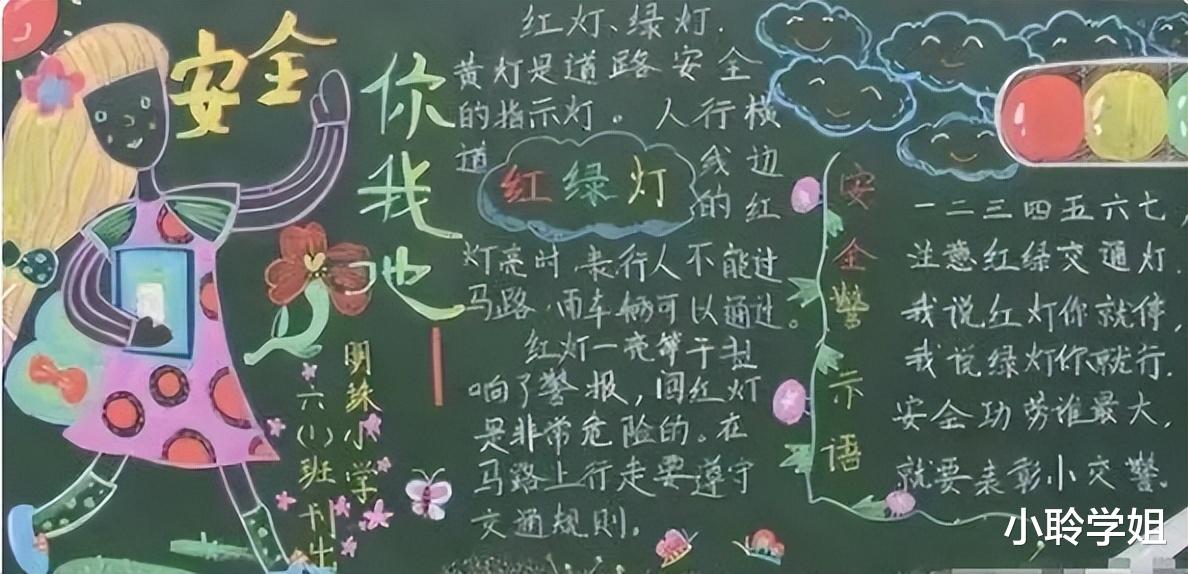 安全
你我他
明珠小学
六(1)班
红灯、绿灯.
黄灯是道路安全
的指示灯。人行横
道 线边
红绿灯
的红
灯亮时,表行人不能过
马路.而车辆可以通过。
红灯一亮等于敲
响了警报,闯红灯
是非常危险的。在
马路上行走要遵守
交通规则。
安全警示语
一二三四五六七,
注意红绿交通灯.
我说红灯你就停,
我说绿灯你就行.
安全功劳谁最大,
就要表彰小交警。
小聆学姐